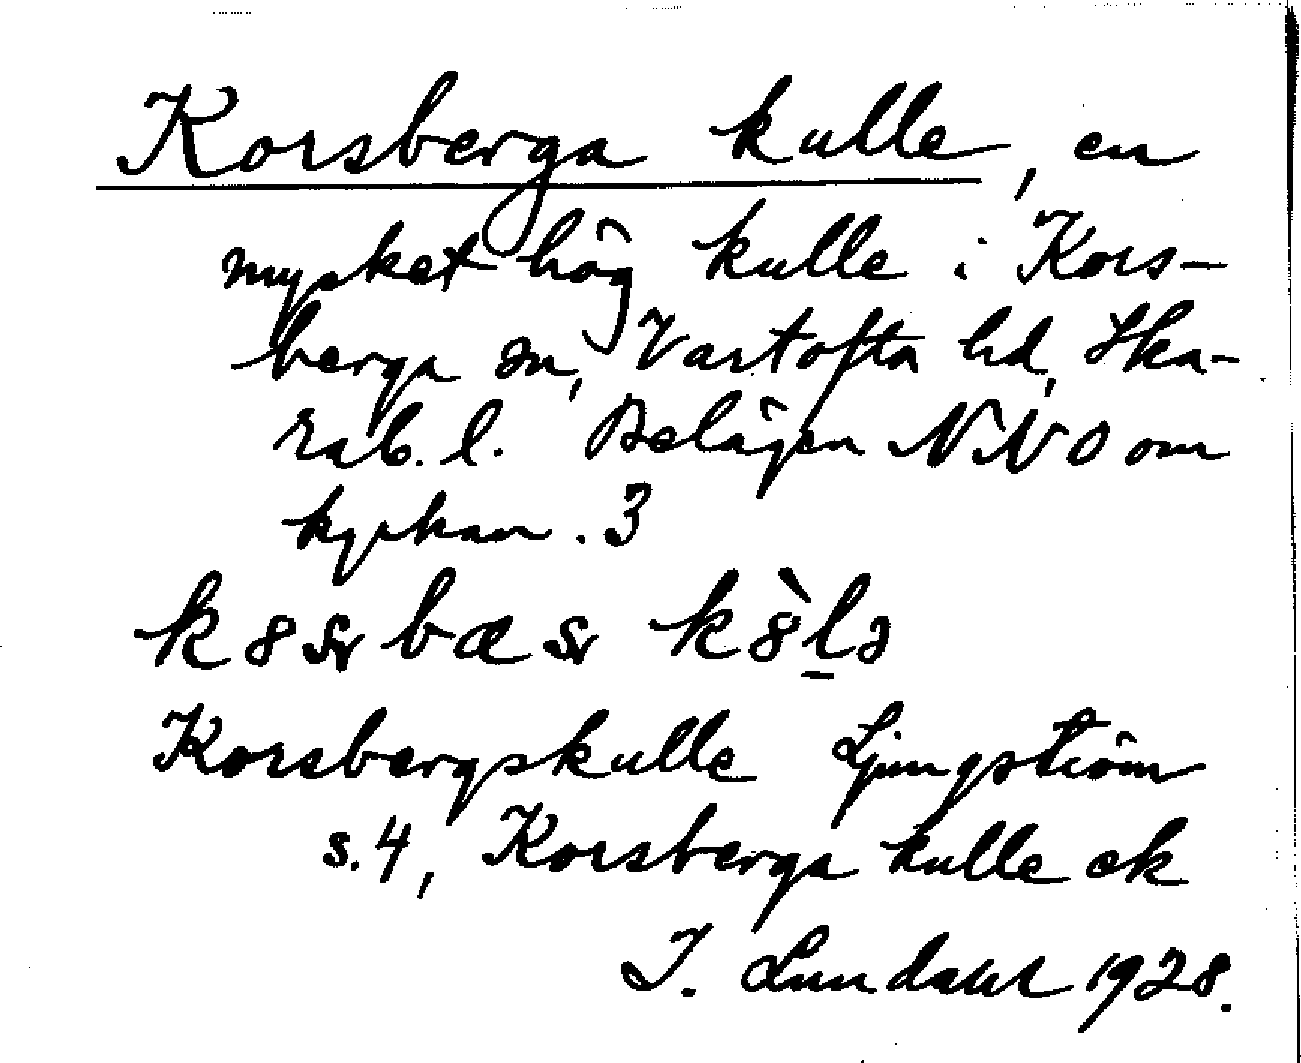 Korsberga kulle, en
mycket hög kulle i Kors-
berga sn, Vartofta hd, Ska-
rab. l. Belägen NNO om
kyrkan. 3
Korsbergskulle Ljungström
s. 4, Korsberga kulle ek
I. Lundahl 1928.